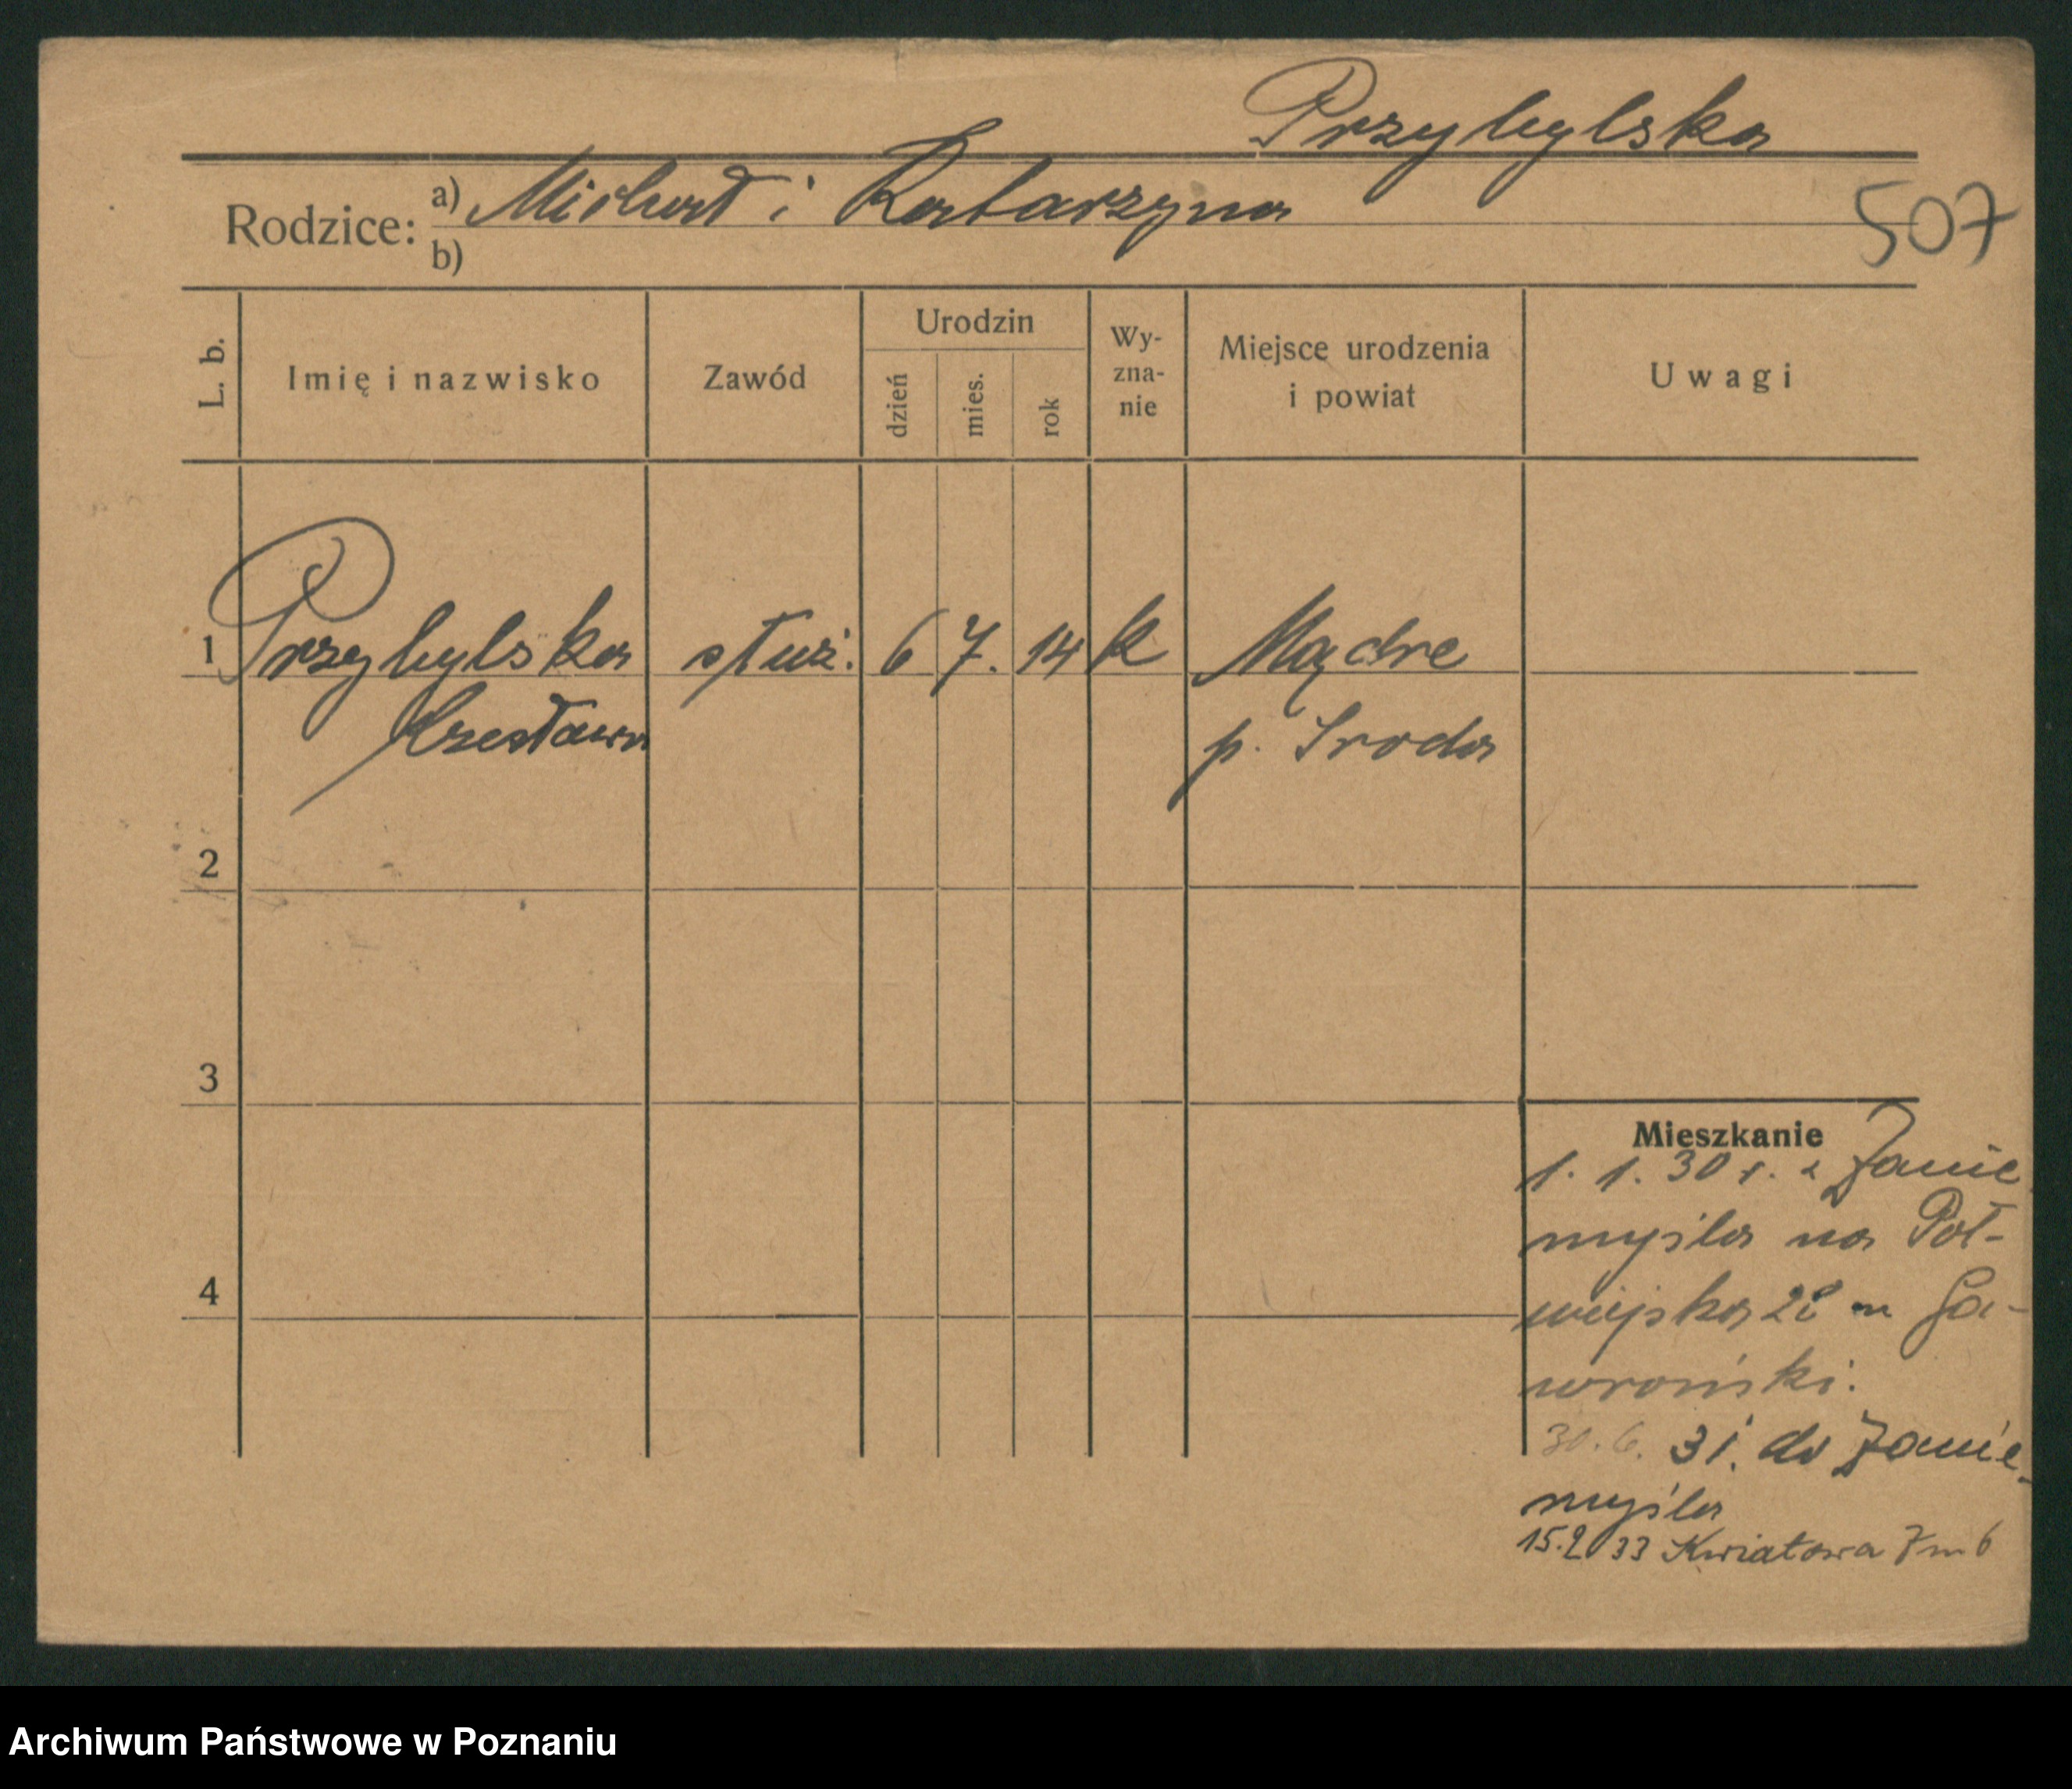 Przybylska
Rodzice: a) Michał i Katarzyna
507
b)
L. b.
Imię i nazwisko
Zawód
Urodzin
dzień
mies.
rok
Wy-
zna-
nie
Miejsce urodzenia
i powiat
Uwagi
1 Przybylska służ. 6 7. 14 k Mądre
Czesława p. Środa
2
3
4
Mieszkanie
1. 1. 30 r. z Zanie
myśla na Pół-
wiejską 28 m Ga-
wroński.
30. 6. 31. do Zanie-
myśla
15.2 33 Kwiatowa 7 m 6
Archiwum Państwowe w Poznaniu